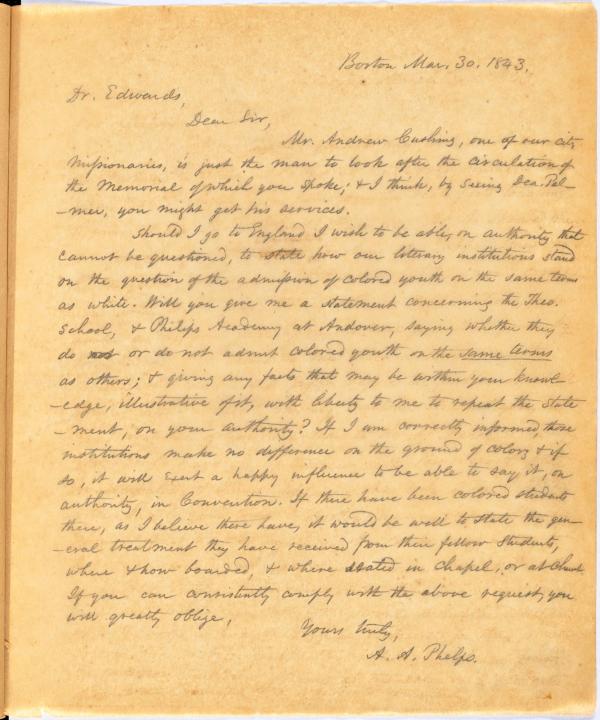 Boston Mar. 30. 1843.
Dr. Edwards,
Dear Sir,
Mr. Andrew Cushing, one of our city
Missionaries, is just the man to look after the circulation of
the Memorial of which you spoke; & I think, by seeing Dea. Pal-
-mer, you might get his services.
Should I go to England I wish to be able, on authority that
cannot be questioned, to state how our literary institutions stand
on the question of the admission of colored youth on the same terms
as white. Will you give me a statement concerning the Theo.
School, & Philips Academy at Andover, saying whether they
do not or do not admit colored youth on the same terms
as others; & giving any facts that may be within your knowl-
-edge, illustrative of it, with liberty to me to repeat the state
-ment, on your authority? If I am correctly informed, those
institutions make no difference on the ground of color; & if
so, it will exert a happy influence to be able to say it, on
authority, in Convention. If there have been colored students
there, as I believe there have, it would be well to state the gen-
-eral treatment they have received from their fellow students,
where & how boarded, & where seated in chapel, or at Church.
If you can consistently comply with the above request, you
will greatly oblige,
Yours truly,
A. A. Phelps.